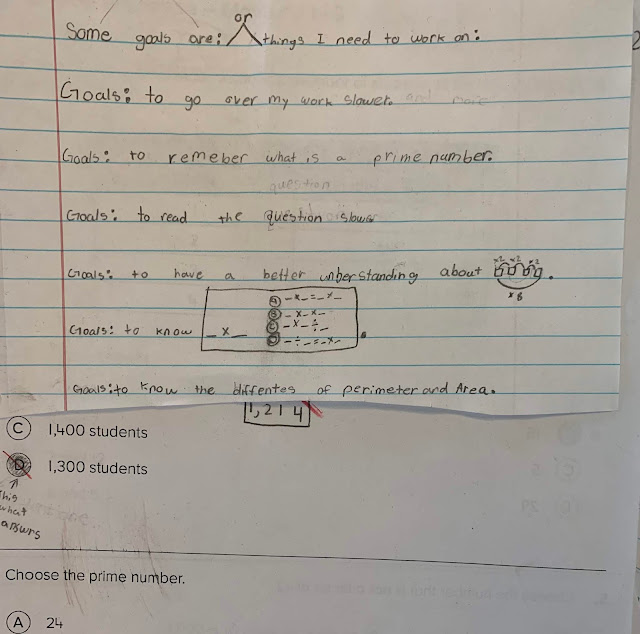 or
Some goals are: things I need to work on:
Goals: to go over my work slower. and more
Goals: to remeber what is a prime number.
question
Goals: to read the question slower
Goals: to have a better unberstanding about
x2 x2 x2
x8
Goals: to know _ x _
A _ x _ = _ x _
B _ x _ x _
C _ x _ ÷ _
D _ ÷ _ = _ x _
Goals: to know the diffentes of perimeter and Area.
1,214
C 1,400 students
D 1,300 students
This
what
answrs
Choose the prime number.
A 24